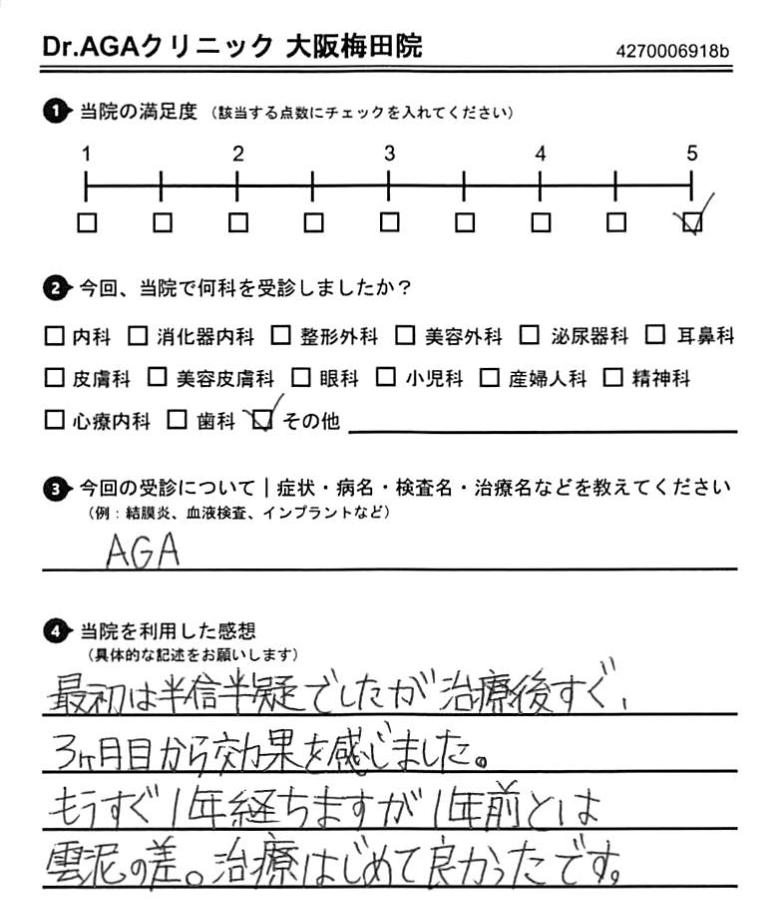 Dr.AGAクリニック 大阪梅田院 4270006918b
1 当院の満足度 (該当する点数にチェックを入れてください)
1 2 3 4 5
2 今回、当院で何科を受診しましたか?
内科 消化器内科 整形外科 美容外科 泌尿器科 耳鼻科
皮膚科 美容皮膚科 眼科 小児科 産婦人科 精神科
心療内科 歯科 その他
3 今回の受診について|症状・病名・検査名・治療名などを教えてください
(例:結膜炎、血液検査、インプラントなど)
AGA
4 当院を利用した感想
(具体的な記述をお願いします)
最初は半信半疑でしたが治療後すぐ、
3ヶ月目から効果を感じました。
もうすぐ1年経ちますが1年前とは
雲泥の差。治療はじめて良かったです。